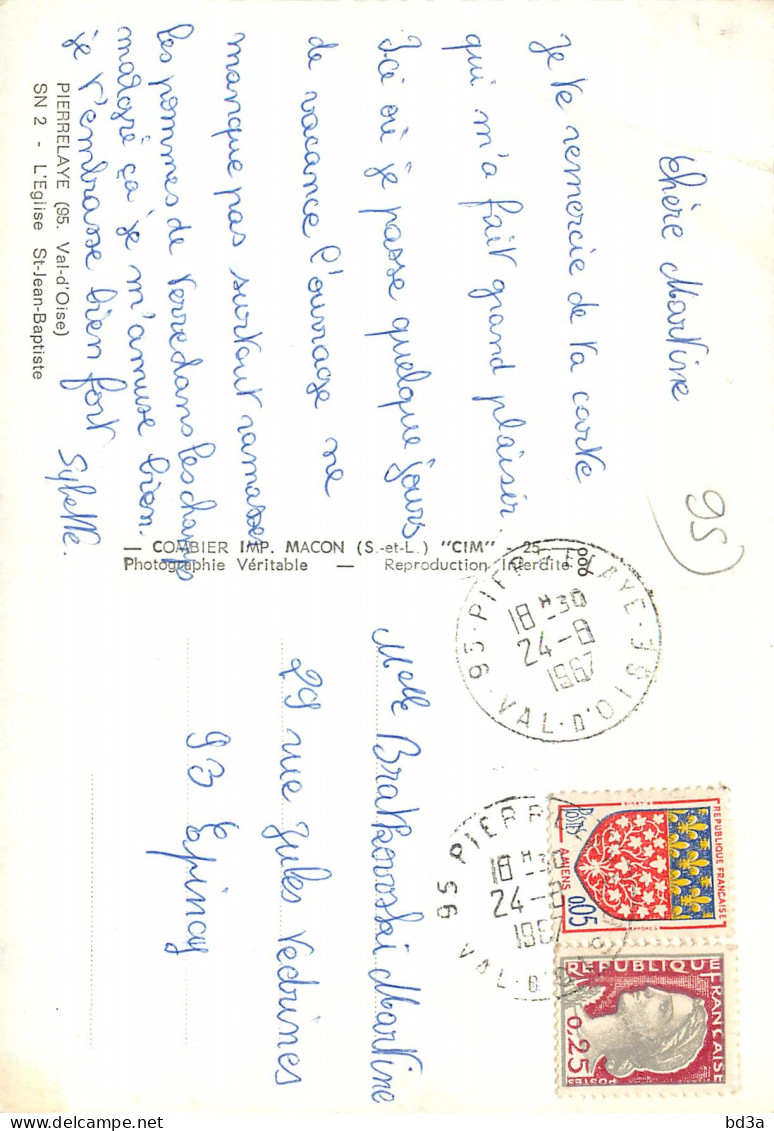 Chère Martine
Je te remercie de ta carte
qui m'a fait grand plaisir.
Ici où je passe quelque jours
de vacance l'ouvrage ne
manque pas surtout ramasser
les pommes de terre dans les champs
malgré ça je m'amuse bien.
je t'embrasse bien fort
Sybelle.
PIERRELAYE (95. Val-d'Oise)
SN 2 - L'Eglise St-Jean-Baptiste
95
COMBIER IMP. MACON (S.-et-L.) "CIM"
Photographie Véritable — Reproduction Interdite
Melle Bratkowski Martine
29 rue Jules Vedrines
93 Epinay
95 - PIERRELAYE
18 H 30
24-8
1967
VAL-D'OISE
95 PIERRE
18 H 30
24-8
1967
VAL-D'
REPUBLIQUE FRANÇAISE
POSTES
AMIENS
0,05
REPUBLIQUE FRANÇAISE
0,25
POSTES
bd3a